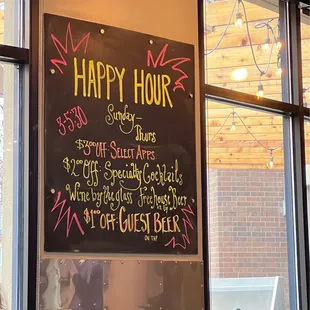 HAPPY HOUR
Sunday -
Thurs
3-5:30
$3.00 OFF SELECT APPS
$2.00 Off Specialty Cocktails
Wine by the glass House Beer
$1.00 OFF GUEST BEER
ON TAP